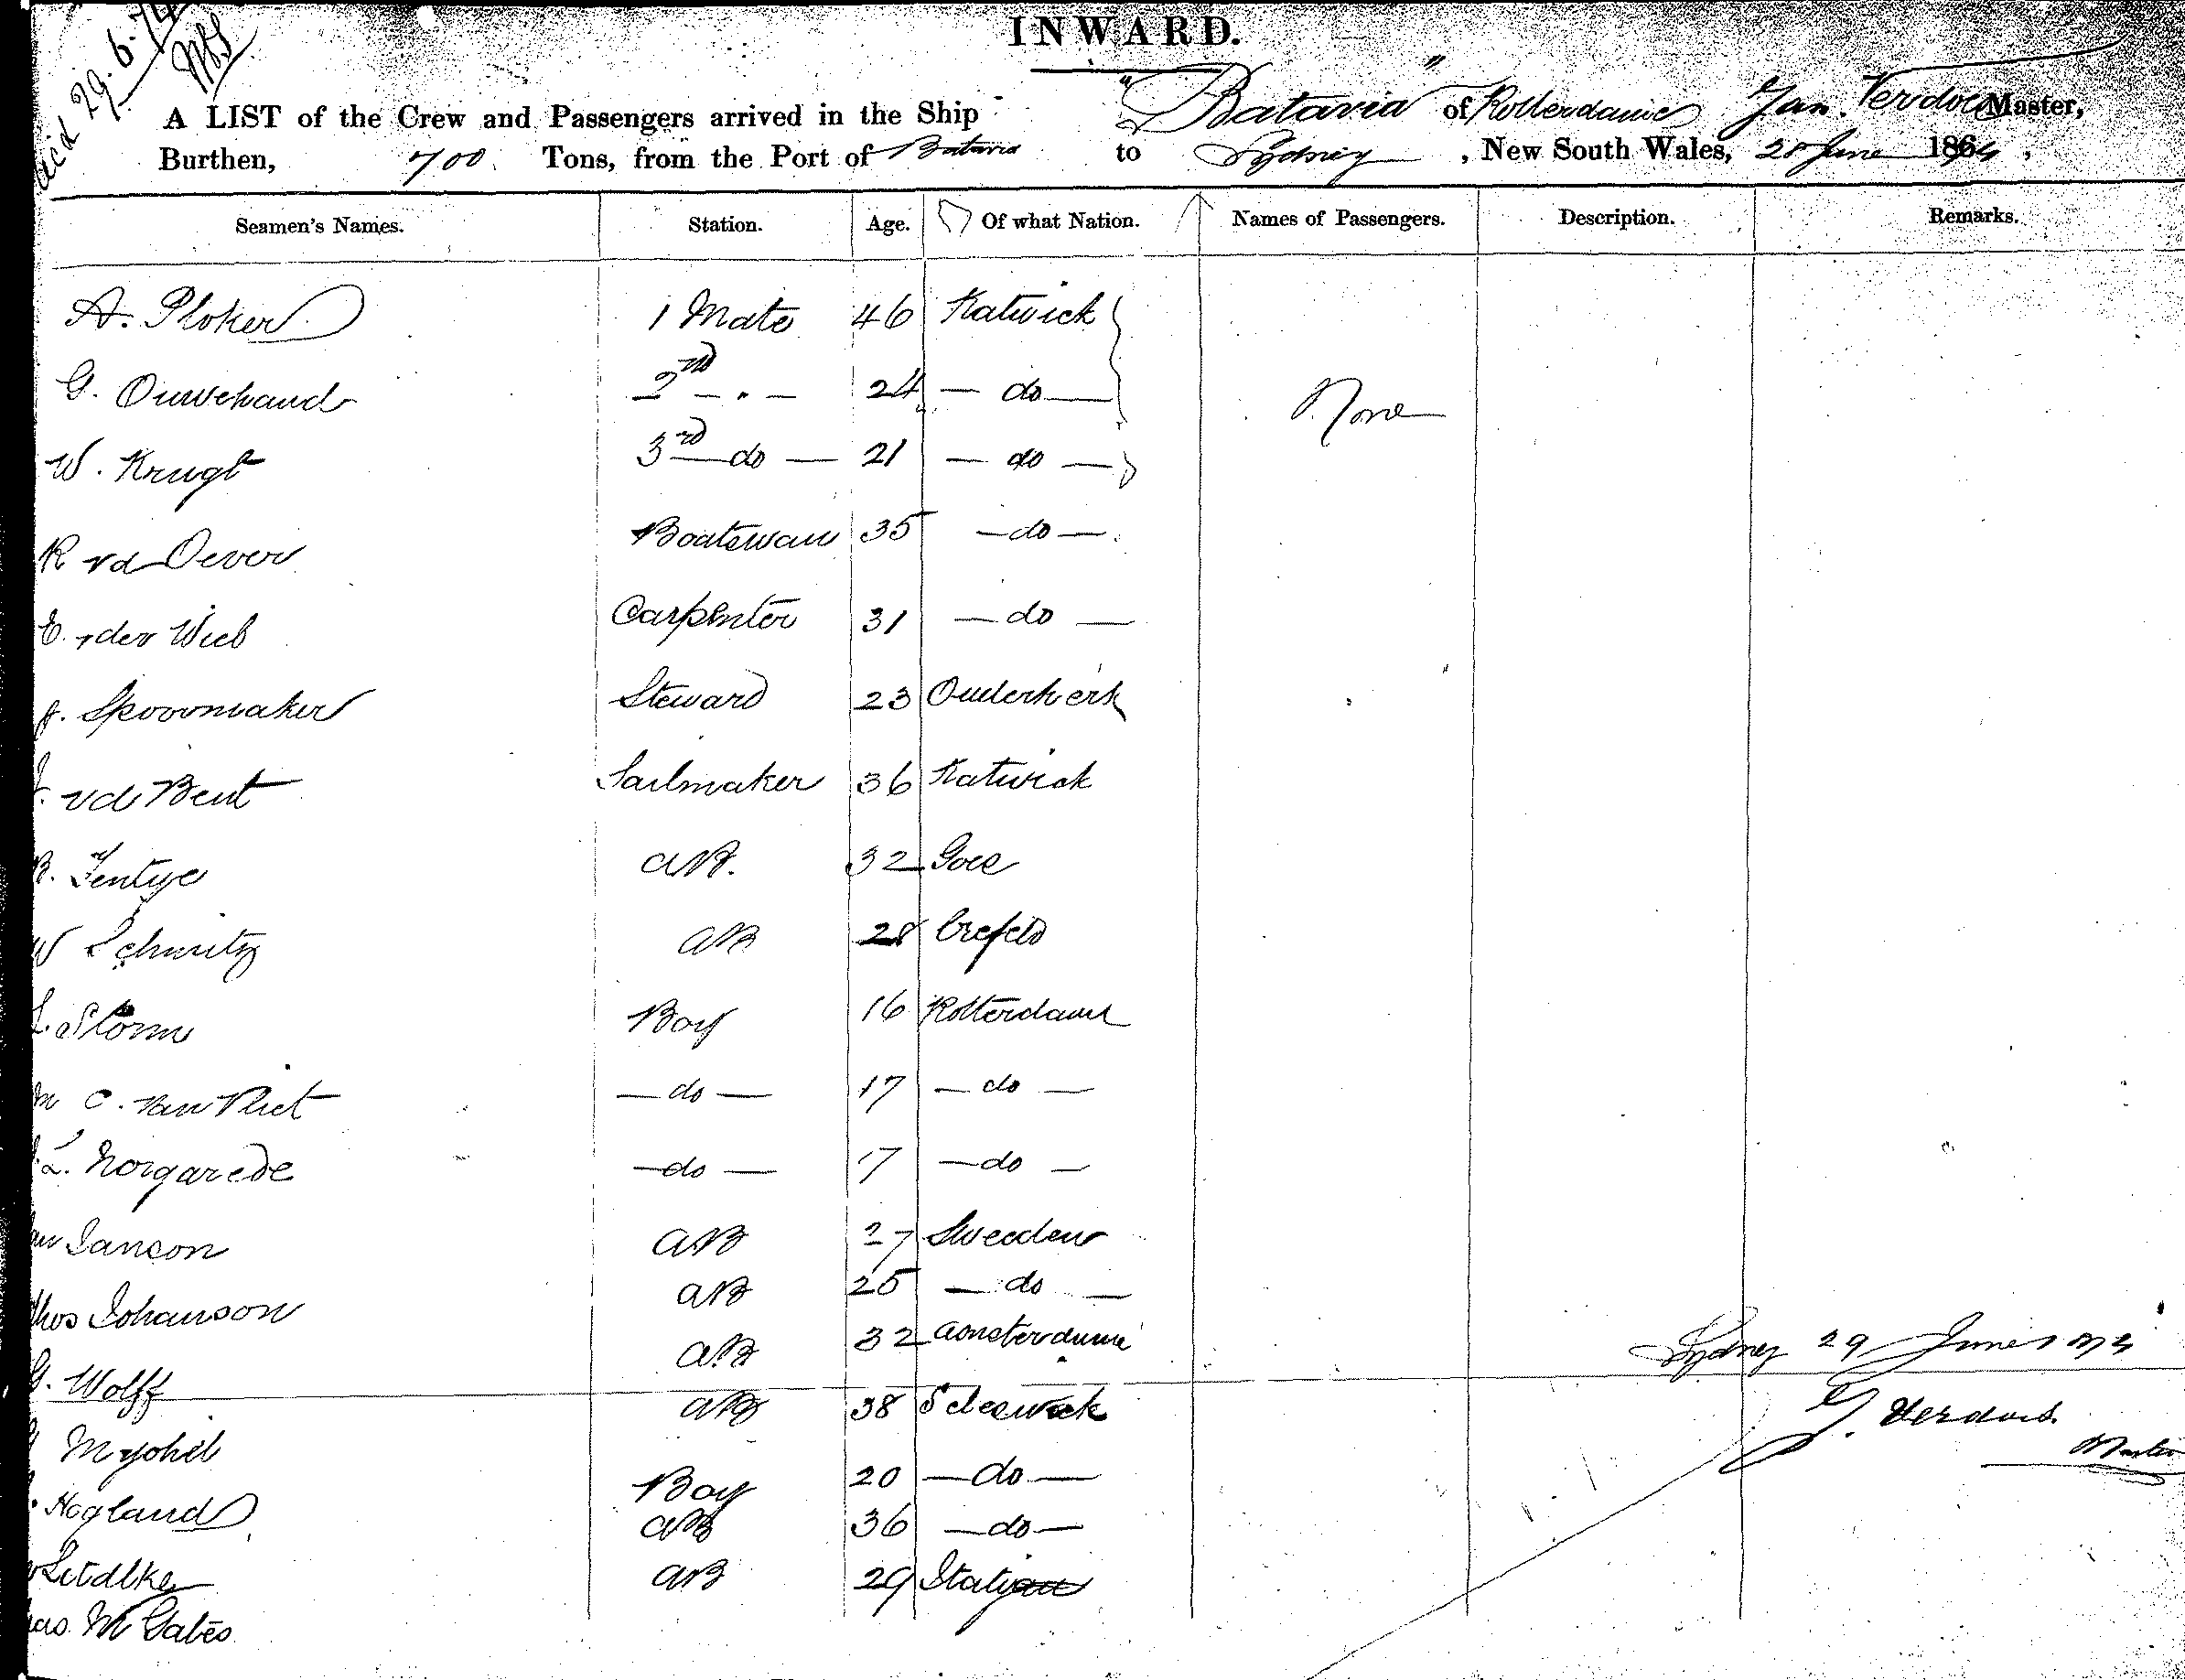 29.6.74
INWARD.
A LIST of the Crew and Passengers arrived in the Ship "Batavia" of Rotterdame Jan. Verdoes Master,
Burthen, 700 Tons, from the Port of Batavia to Sydney, New South Wales, 28 June 1874,
Seamen's Names. Station. Age. Of what Nation. Names of Passengers. Description. Remarks.
A. Ploker 1 Mate 46 Katwick
G. Ouwehand 2nd - " - 24 — do — None
W. Krugt 3rd do — 21 — do —
R vd Oever Boatswan 35 — do —
E. v der Wieb Carpenter 31 — do —
J. Spoormaker Steward 23 Ouderkerk
vd Bent Sailmaker 36 Katwick
B. Fentye AB. 32 Goes
W Schmitz AB 28 Crefeld
L. Storm Boy 16 Rotterdam
C. van Vliet — do — 17 — do —
L. Norgarede — do — 17 — do —
Janson AB 27 Sweeden
Thos Johanson AB 25 — do —
G. Wolff AB 32 Amsterdame
Myohel AB 38 Sleswick
Hogland Boy 20 — do —
Litdlke AB 36 — do —
has McGates AB 29 Italy
Sydney 29 June 1874
J. Verdoes
Master